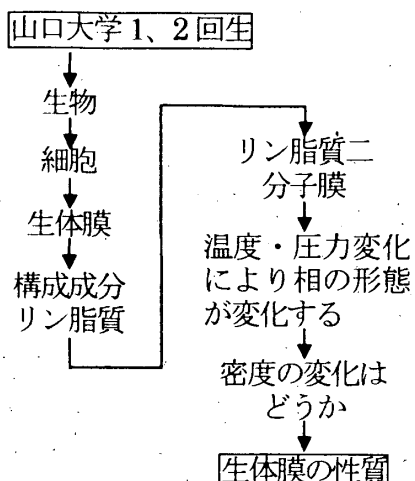 山口大学1、2回生
生物
細胞
生体膜
構成成分
リン脂質
リン脂質二
分子膜
温度・圧力変化
により相の形態
が変化する
密度の変化は
どうか
生体膜の性質